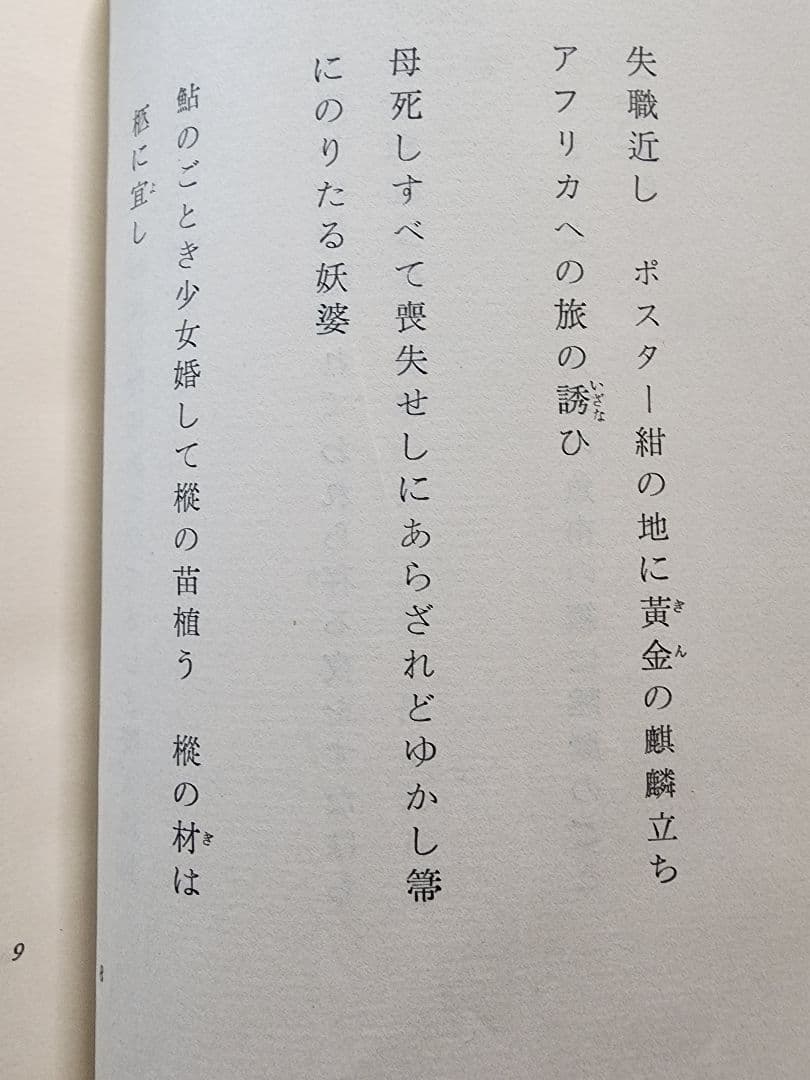 失職近し　ポスター紺の地に黃金の麒麟立ち
アフリカへの旅の誘ひ
母死しすべて喪失せしにあらざれどゆかし箒
にのりたる妖婆
鮎のごとき少女婚して樅の苗植う　樅の材は
柩に宜し
9